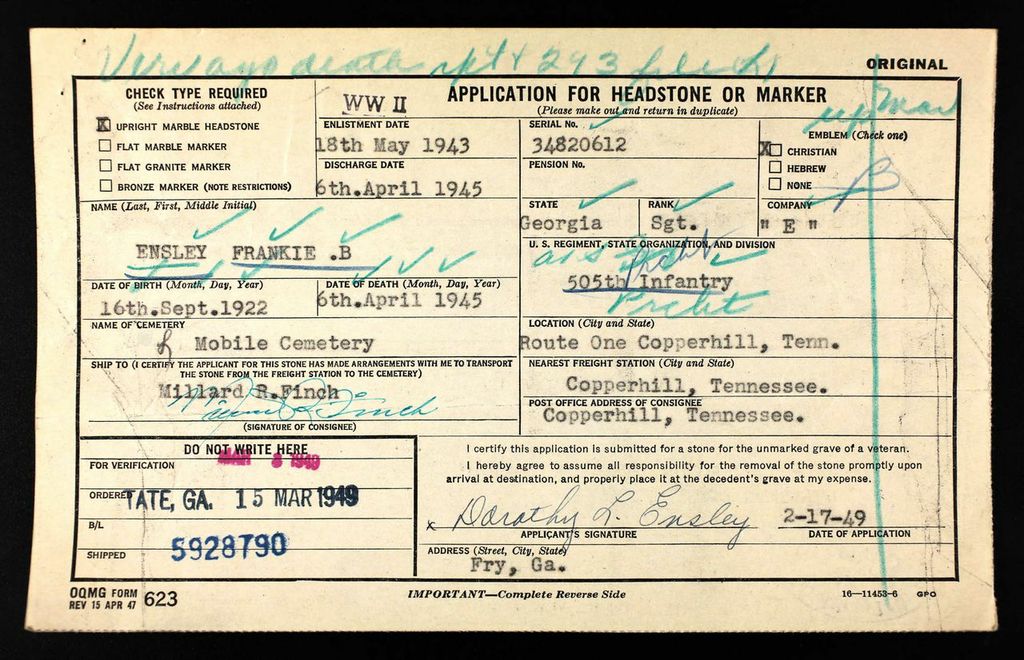 death rpt + 293 file
ORIGINAL
CHECK TYPE REQUIRED
(See Instructions attached)
X UPRIGHT MARBLE HEADSTONE
FLAT MARBLE MARKER
FLAT GRANITE MARKER
BRONZE MARKER (NOTE RESTRICTIONS)
WW II
APPLICATION FOR HEADSTONE OR MARKER
(Please make out and return in duplicate)
ENLISTMENT DATE
18th May 1943
DISCHARGE DATE
6th.April 1945
SERIAL No.
34820612
PENSION No.
EMBLEM (Check one)
X CHRISTIAN
HEBREW
NONE
STATE
Georgia
RANK
Sgt.
COMPANY
" E "
NAME (Last, First, Middle Initial)
ENSLEY FRANKIE .B
U. S. REGIMENT, STATE ORGANIZATION, AND DIVISION
505th Infantry
Prcht
DATE OF BIRTH (Month, Day, Year)
16th.Sept.1922
DATE OF DEATH (Month, Day, Year)
6th.April 1945
NAME OF CEMETERY
Mobile Cemetery
LOCATION (City and State)
Route One Copperhill, Tenn.
SHIP TO (I CERTIFY THE APPLICANT FOR THIS STONE HAS MADE ARRANGEMENTS WITH ME TO TRANSPORT
THE STONE FROM THE FREIGHT STATION TO THE CEMETERY)
Millard R.Finch
(SIGNATURE OF CONSIGNEE)
NEAREST FREIGHT STATION (City and State)
Copperhill, Tennessee.
POST OFFICE ADDRESS OF CONSIGNEE
Copperhill, Tennessee.
DO NOT WRITE HERE
FOR VERIFICATION
MAR 8 1949
ORDERED
TATE, GA. 15 MAR 1949
B/L
5928790
SHIPPED
I certify this application is submitted for a stone for the unmarked grave of a veteran.
I hereby agree to assume all responsibility for the removal of the stone promptly upon
arrival at destination, and properly place it at the decedent's grave at my expense.
x Dorothy L. Ensley
2-17-49
APPLICANT'S SIGNATURE
DATE OF APPLICATION
ADDRESS (Street, City, State)
Fry, Ga.
OQMG FORM
REV 15 APR 47
623
IMPORTANT—Complete Reverse Side
16—11453-6 GPO